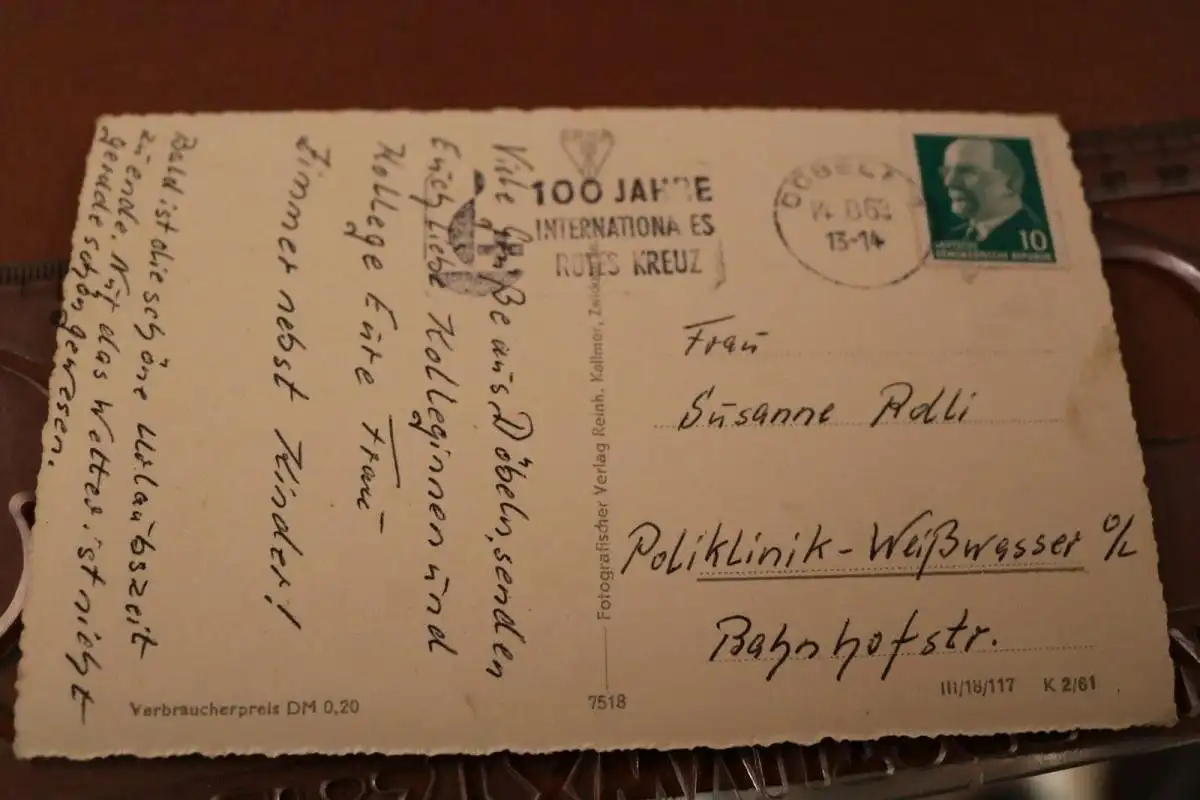 Viele Grüße aus Döbeln, senden
Euch liebe Kolleginnen und
Kollege Eure Frau
Zimmer nebst Kinder!
Bald ist die schöne Urlaubszeit
zu ende. Nur das Wetter ist nicht
gerade schön gewesen.
100 JAHRE
INTERNATIONA ES
ROTES KREUZ
DÖBELN
13-14
10
DEUTSCHE
DEMOKRATISCHE REPUBLIK
Frau
Susanne
Poliklinik-Weißwasser O/L
Bahnhofstr.
Fotografischer Verlag Reinh. Kallmer, Zwickau
Verbraucherpreis DM 0,20
7518
III/18/117 K 2/61